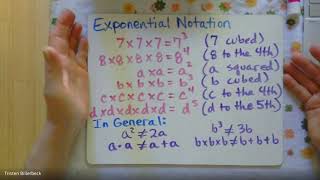 Exponential Notation
7×7×7=7³ (7 cubed)
8×8×8×8=8⁴ (8 to the 4th)
a×a=a² (a squared)
b×b×b=b³ (b cubed)
c×c×c×c=c⁴ (c to the 4th)
d×d×d×d×d=d⁵ (d to the 5th)
In General:
a²≠2a b³≠3b
a·a≠a+a b×b×b≠b+b+b
Tristen Billerbeck